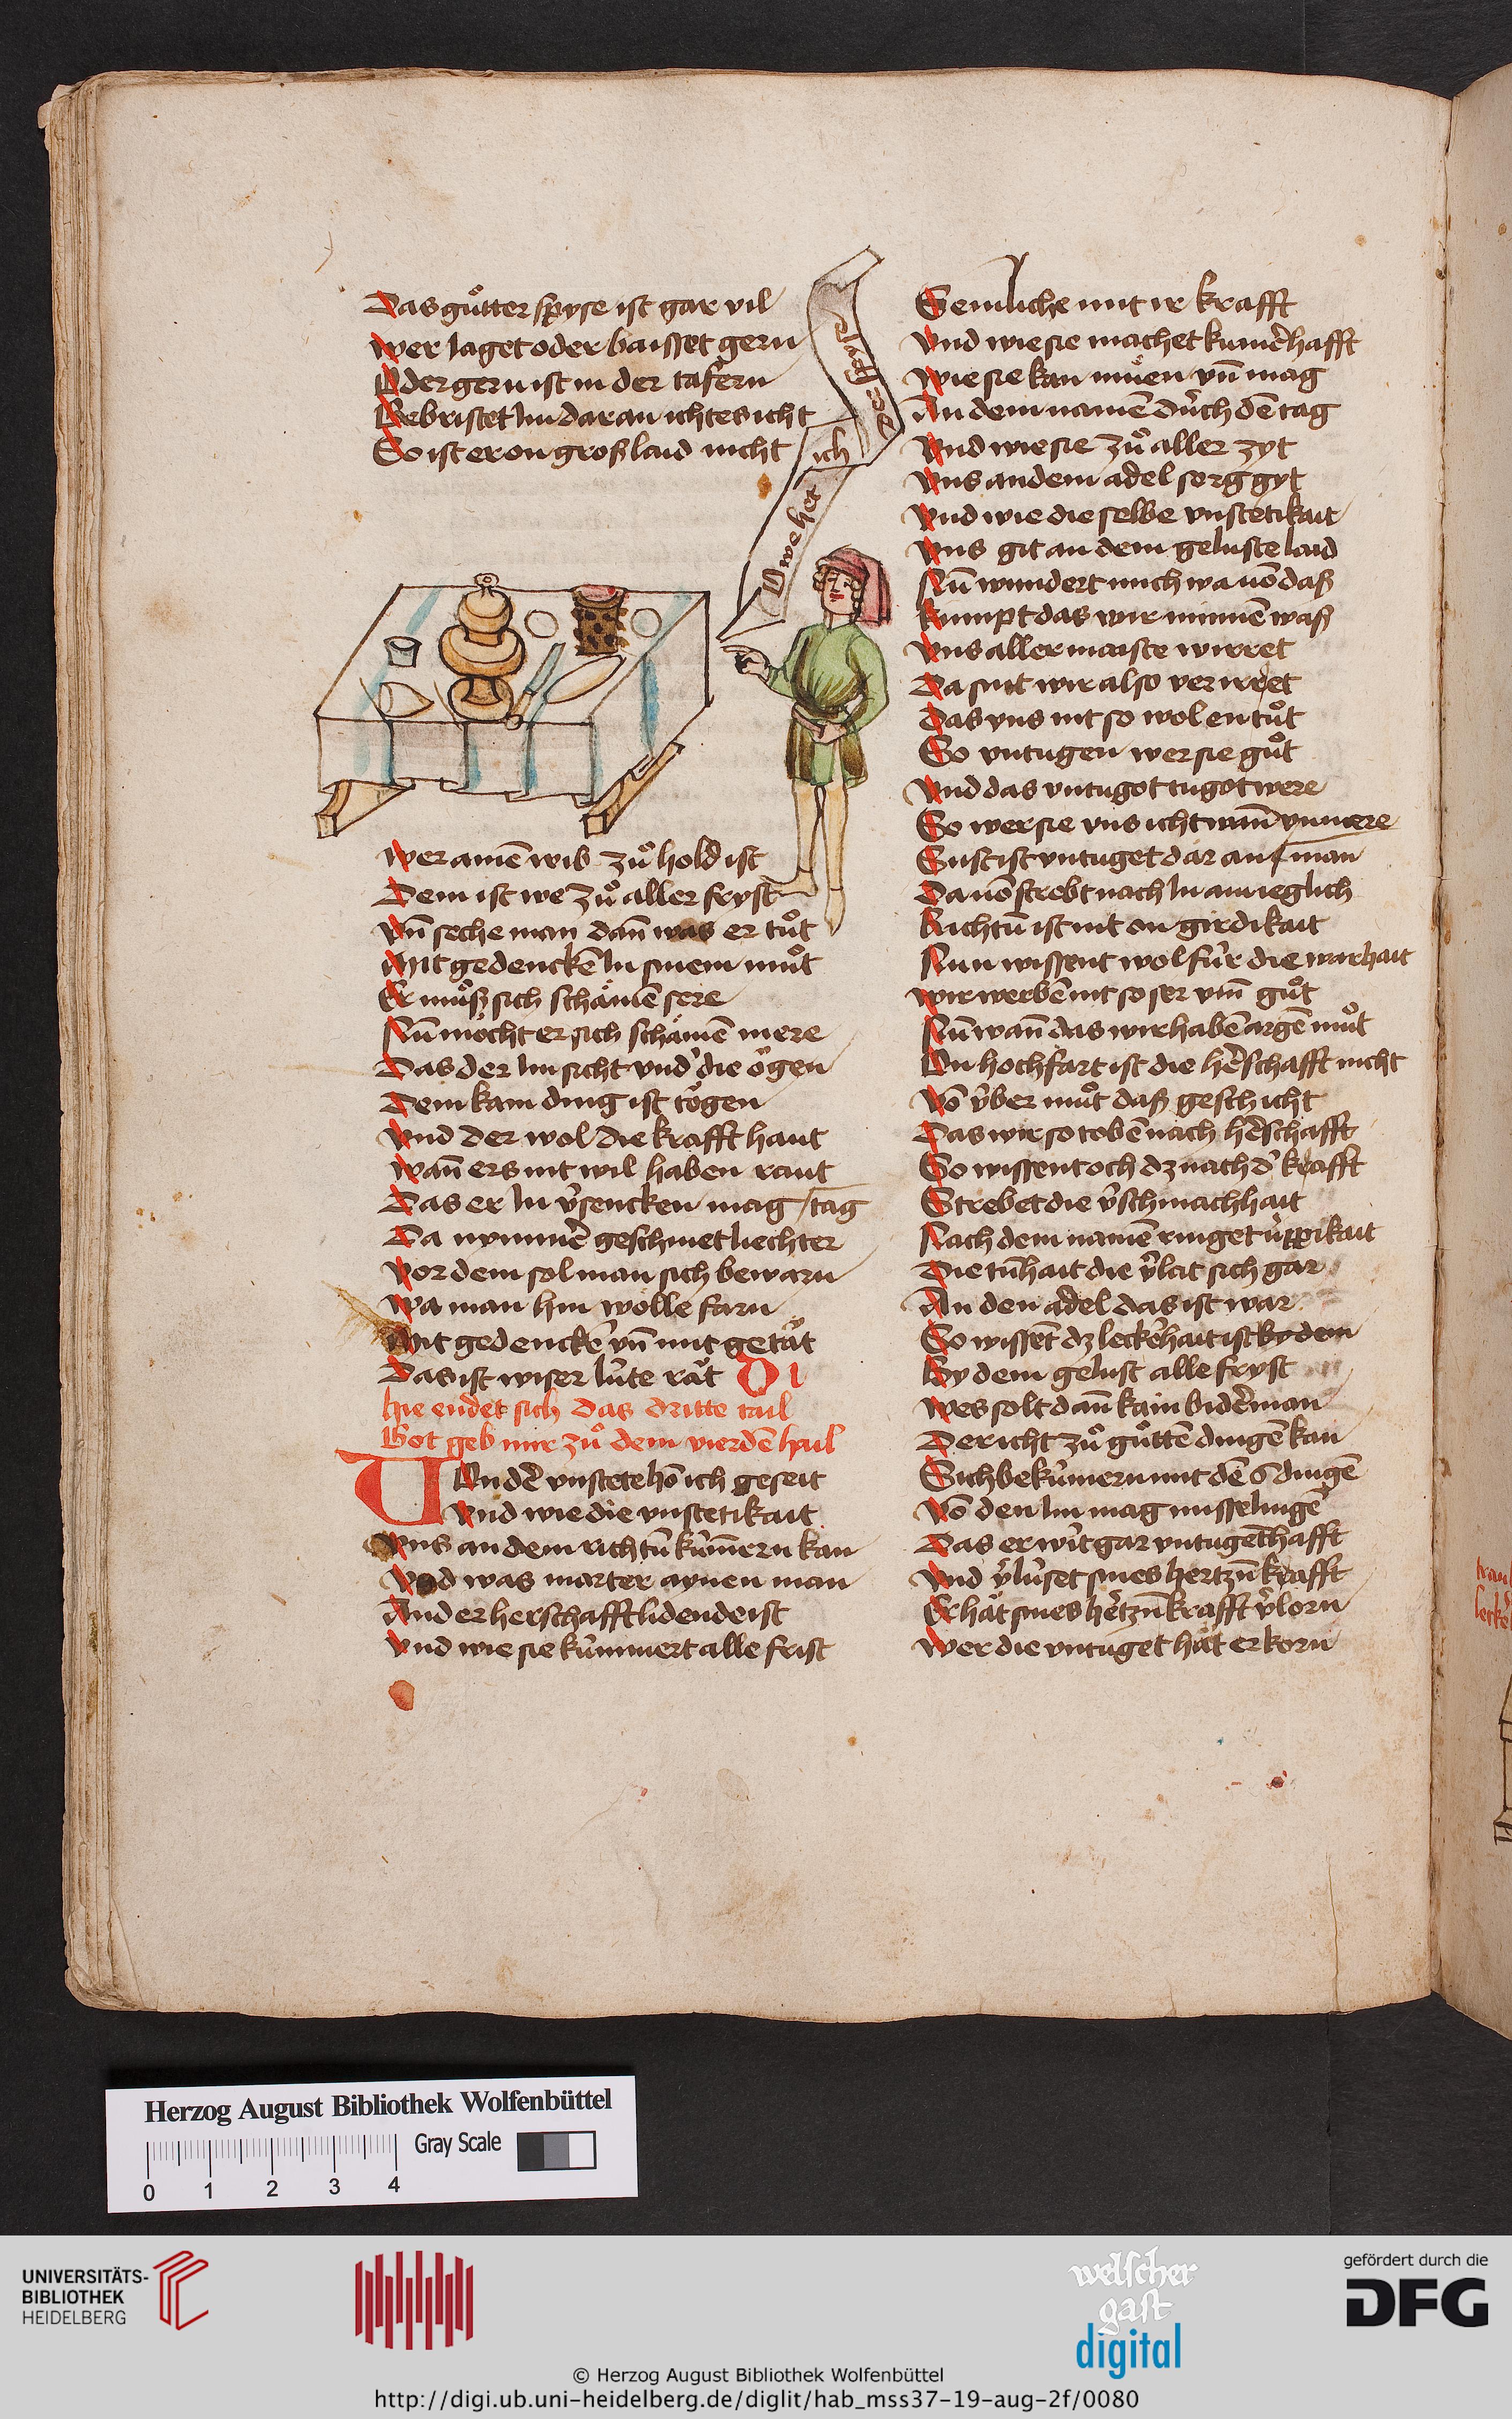 Das gůtter spyse ist gar vil
wer Jaget oder baisset gern
Oder gern ist in der tafern
Gebristet Im daran ichtes icht
So ist er on groß laid nicht
O we het
ich
der spys
wer ainē wib zů hold ist
Dem ist we zů aller fryst
vn̄ seche man dan̄ was er tůt
Mit gedenckē In sinem můt
Er můß sich schämē sere
Nū möcht er sich schämē mere
Das der Im sicht vnd' die ögen
Dem kain ding ist tögen
vnd der wol die krafft haut
wan̄ ers nit wil haben raut
Das er In v'sencken mag
tag
Da nym̄er geschinet liechter
vor dem sol man sich bewarn
wa man hin wölle farn
Mit gedenckē vn̄ mit getät
Das ist wiser lüte rät
hie endet sich das dritte tail
Got geb mir zů dem vierdē hail
Von der vnstete hō ich geseit
vnd wie die vnstetikait
vns an dem richtū küm̄ern kan
vnd was marter aynen man
An der herschafft lidende ist
vnd wie sie kümmert alle frist
Semliche mit ir krafft
vnd wie sie machet kumerhafft
wie sie kan müen vn̄ mag
An dem namē durch dē tag
vnd wie sie zů aller zyt
vns an dem adel sorg gyt
vnd wie die selbe vnstetikait
vns git an dem geluste laid
Nū wundert mich wa uō daß
kumpt das wir minnē waß
vns aller maiste wirret
Da sint wir also verirret
das vns nit so wol entůt
So vntugen wer sie gůt
vnd das vntugot tugot were
So wer sie vns icht wan̄ vnmere
Sust ist vntuget dar an
man
Da uō strebt nach In amieglich
Richtū ist nit on girdikait
Nun wissent wol für die warhait
wir werbē nit so ser vm̄ gůt
Nū wan̄ das wir habē argē můt
On hochfart ist die h'schafft nicht
vō v̈ber můt daß geschicht
Das wir so tobē nach h'schafft
So wissent och dz nach d' krafft
Strebet die v'schmachhait
Nach dem namē ringet üppikait
Die tūhait die v'lat sich gar
An den adel das ist war
So wissēt dz leck'hait ist by dem
By dem gelust alle fryst
wes solt dan̄ kain bid'man
Der icht zů gůttē dingē kan
Sich bekümern mit dē 6 dingē
vō den Im mag misselingē
Das er wirt gar vntugēthafft
vnd v'lüset sines hertzn̄ krafft
Er hät sines h'tzn̄ krafft v'lorn
wer die vntuget hät erkorn
Herzog August Bibliothek Wolfenbüttel
Gray Scale
0 1 2 3 4
UNIVERSITÄTS-
BIBLIOTHEK
HEIDELBERG
welscher
gast
digital
gefördert durch die
DFG
© Herzog August Bibliothek Wolfenbüttel
http://digi.ub.uni-heidelberg.de/diglit/hab_mss37-19-aug-2f/0080